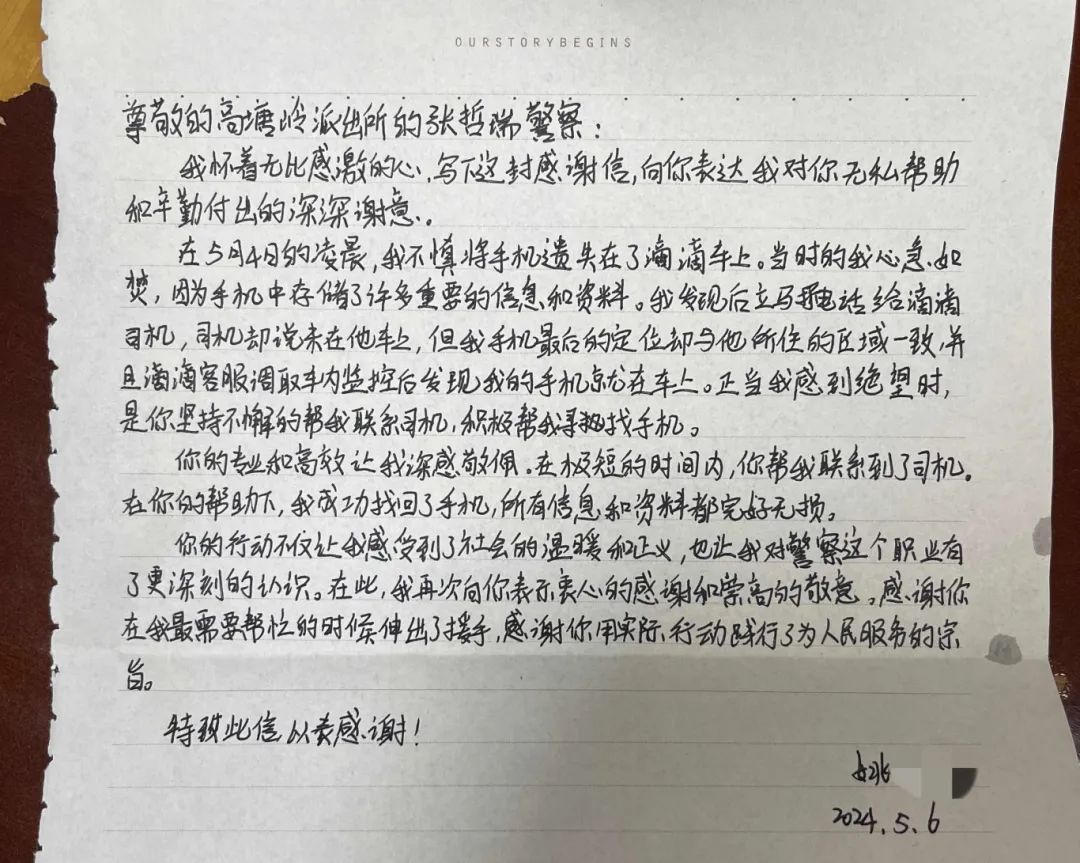 OURSTORYBEGINS
尊敬的高塘岭派出所的张哲瑞警察：
我怀着无比感激的心，写下这封感谢信，向你表达我对你无私帮助
和辛勤付出的深深谢意。
在5月4日的凌晨，我不慎将手机遗失在了滴滴车上。当时的我心急如
焚，因为手机中存储了许多重要的信息和资料。我发现后立马打电话给滴滴
司机，司机却说未在他车上，但我手机最后的定位却与他所住的区域一致，并
且滴滴客服调取车内监控后发现我的手机就在车上。正当我感到绝望时，
是你坚持不懈的帮我联系司机，积极帮我寻找手机。
你的专业和高效让我深感敬佩。在极短的时间内，你帮我联系到了司机。
在你的帮助下，我成功找回了手机，所有信息和资料都完好无损。
你的行动不仅让我感受到了社会的温暖和正义，也让我对警察这个职业有
了更深刻的认识。在此，我再次向你表示衷心的感谢和崇高的敬意。感谢你
在我最需要帮忙的时候伸出了援手，感谢你用实际行动践行了为人民服务的宗
旨。
特致此信以表感谢！
姚
2024.5.6